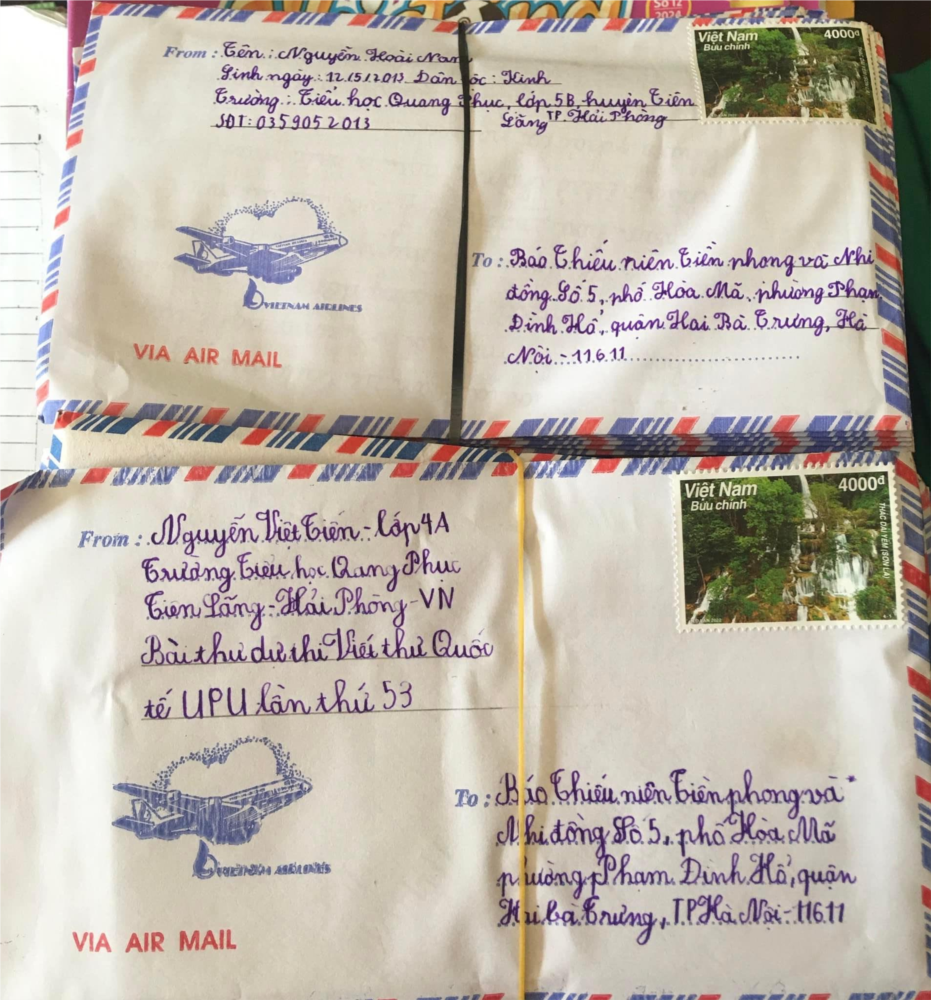 Số 12
2024
Việt Nam
Bưu chính
4000đ
From : Tên : Nguyễn Hoài Nam
Sinh ngày : 12/5/2013 Dân tộc : Kinh
Trường : Tiểu học Quang Phục, lớp 5B, huyện Tiên
SĐT: 0359052013 Lãng TP. Hải Phòng
To : Báo Thiếu niên Tiền phong và Nhi
đồng Số 5, phố Hòa Mã, phường Phạm
Đình Hổ, quận Hai Bà Trưng, Hà
Nội - 11611
VIETNAM AIRLINES
VIA AIR MAIL
Việt Nam
Bưu chính
4000đ
THÁC DẢI YẾM (SƠN LA)
From : Nguyễn Việt Tiến - lớp 4A
Trường Tiểu học Quang Phục
Tiên Lãng - Hải Phòng - VN
Bài thư dự thi Viết thư Quốc
tế UPU lần thứ 53
To : Báo Thiếu niên Tiền phong và
Nhi đồng Số 5, phố Hòa Mã
phường Phạm Đình Hổ, quận
Hai Bà Trưng, T.P Hà Nội - 11611
VIETNAM AIRLINES
VIA AIR MAIL